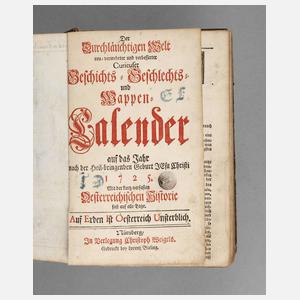 Der
Durchläuchtigen Welt
neu-vermehrter und verbesserter
Curieuser
Geschichts-Geschlechts-
und
Wappen-
Calender
auf das Jahr
nach der Heil-bringenden Geburt JEsu Christi
1725.
Mit der kurtz-verfaßten
Oesterreichischen Historie
fast auf alle Tage.
Auf Erden ist Oesterreich Unsterblich.
Nürnberg/
In Verlegung Christoph Weigels.
Gedruckt bey Lorentz Bieling.